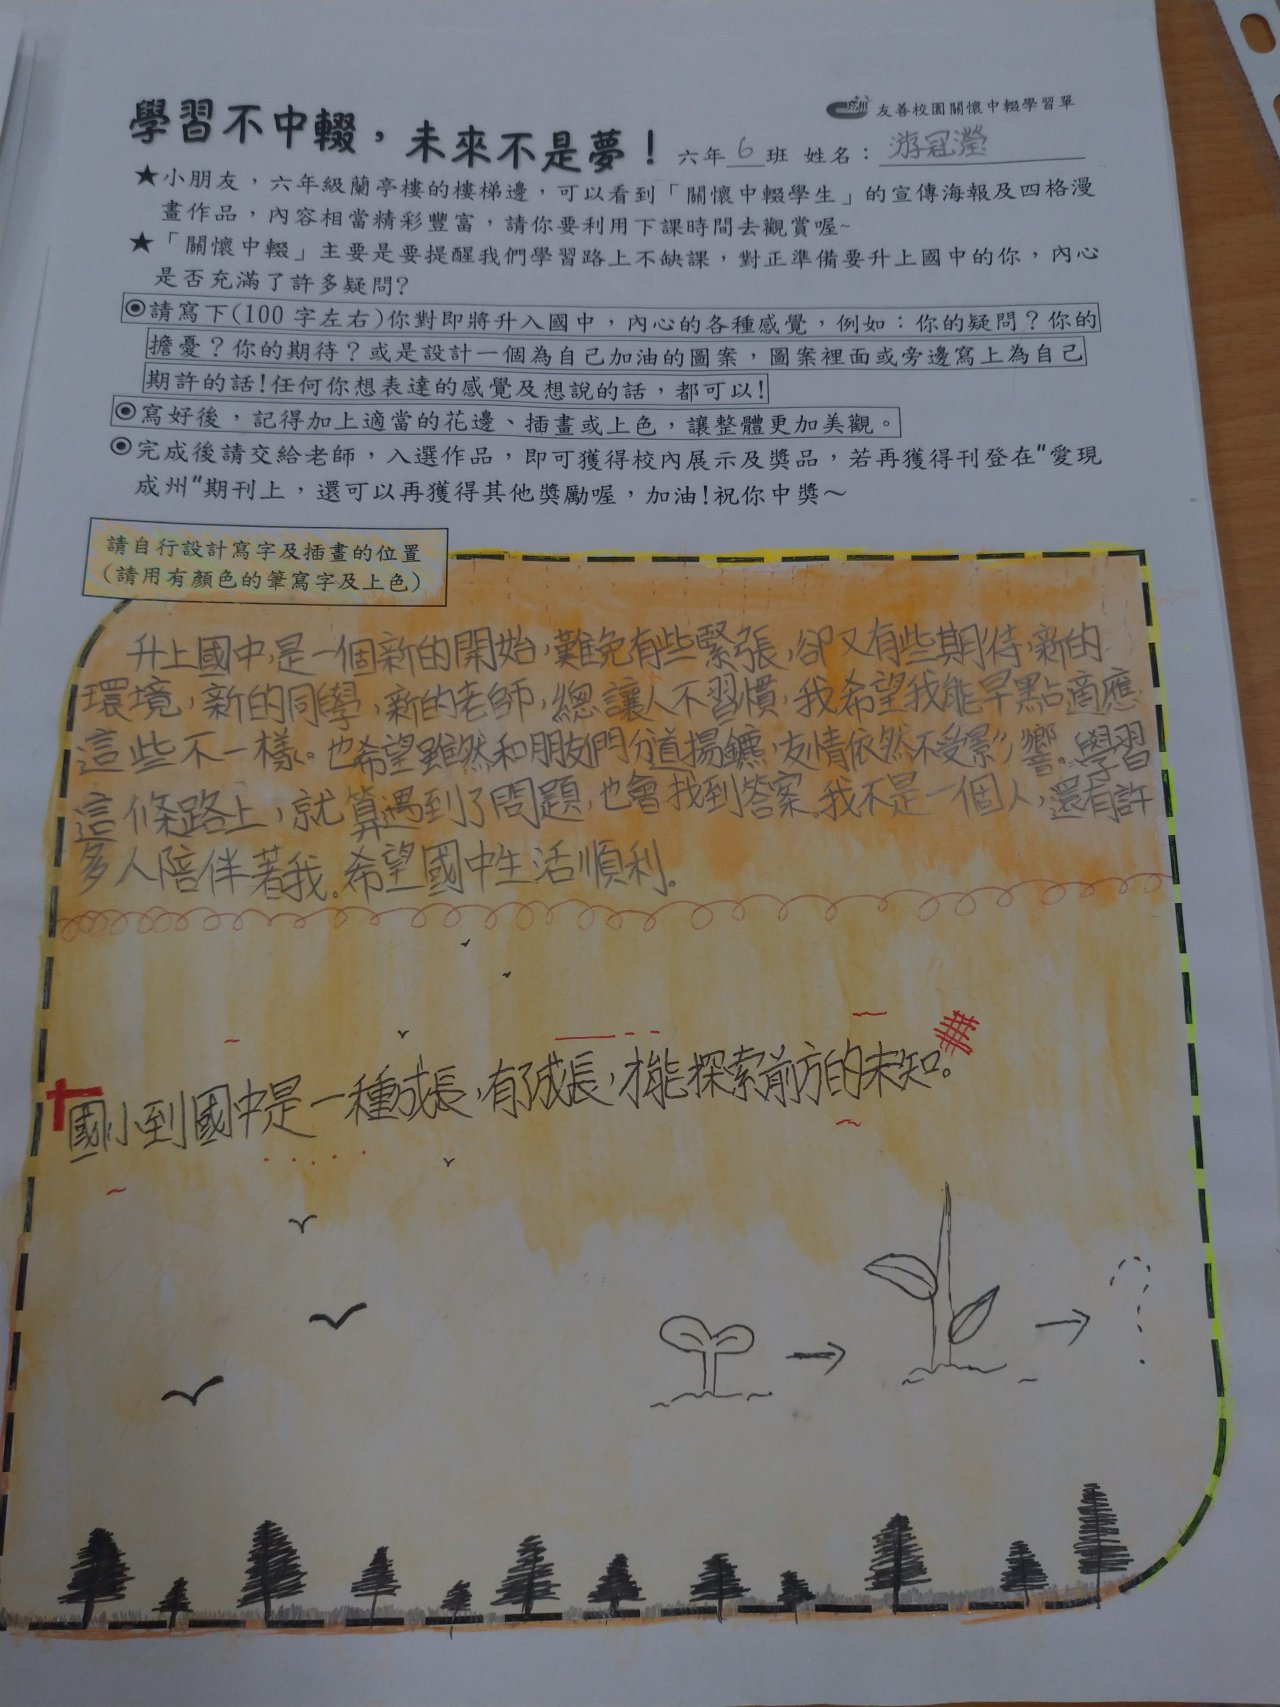 友善校園關懷中輟學習單
學習不中輟，未來不是夢！ 六年6班 姓名：游冠瀅
★小朋友，六年級蘭亭樓的樓梯邊，可以看到「關懷中輟學生」的宣傳海報及四格漫
畫作品，內容相當精彩豐富，請你要利用下課時間去觀賞喔~
★「關懷中輟」主要是要提醒我們學習路上不缺課，對正準備要升上國中的你，內心
是否充滿了許多疑問?
◉請寫下(100字左右)你對即將升入國中，內心的各種感覺，例如：你的疑問？你的
擔憂？你的期待？或是設計一個為自己加油的圖案，圖案裡面或旁邊寫上為自己
期許的話!任何你想表達的感覺及想說的話，都可以!
◉寫好後，記得加上適當的花邊、插畫或上色，讓整體更加美觀。
◉完成後請交給老師，入選作品，即可獲得校內展示及獎品，若再獲得刊登在"愛現
成州"期刊上，還可以再獲得其他獎勵喔，加油!祝你中獎～
請自行設計寫字及插畫的位置
(請用有顏色的筆寫字及上色)
升上國中,是一個新的開始,難免有些緊張,卻又有些期待,新的
環境,新的同學,新的老師,總讓人不習慣,我希望我能早點適應
這些不一樣。也希望雖然和朋友們分道揚鑣,友情依然不受影響。學習
這條路上,就算遇到了問題,也會找到答案。我不是一個人,還有許
多人陪伴著我。希望國中生活順利。
國小到國中是一種成長,有成長,才能探索前方的未知。